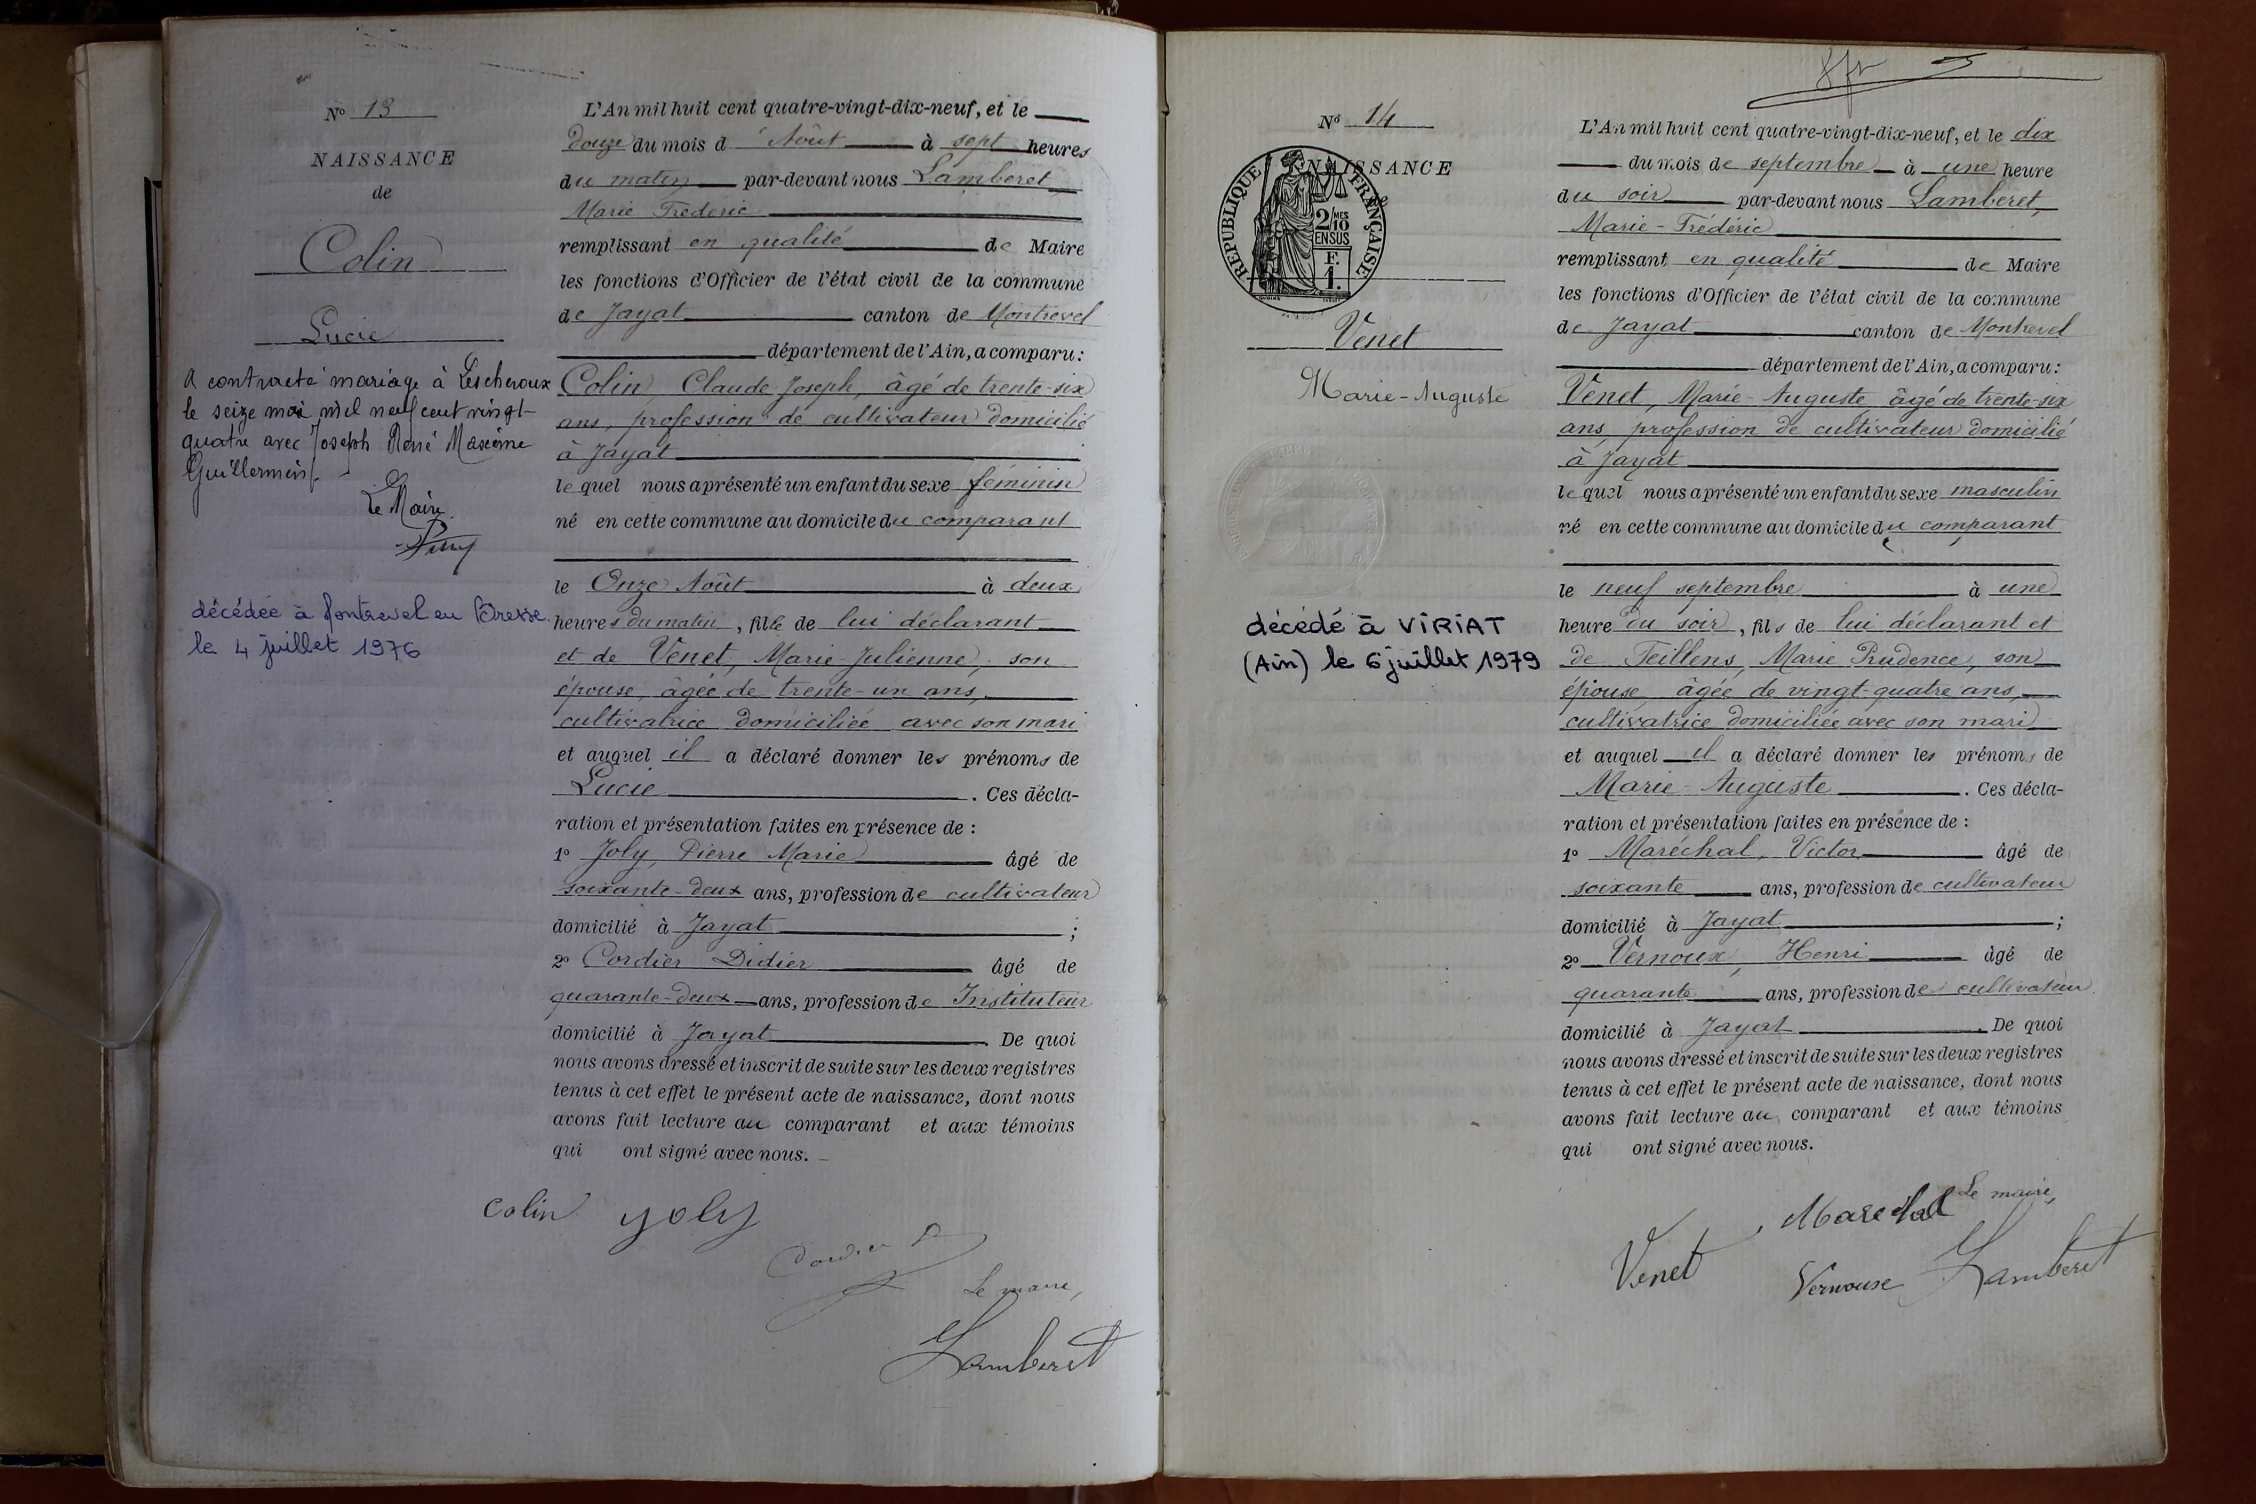 No 13
NAISSANCE
de
Colin
Lucie
A contracté mariage à Lescheroux
le seize mai mil neuf cent vingt-
quatre avec Joseph René Maxime
Guillermin.
Le Maire
décédée à Montrevel en Bresse
le 4 juillet 1976
L'An mil huit cent quatre-vingt-dix-neuf, et le
douze du mois d'Août à sept heures
du matin par-devant nous Lamberet
Marie Frédéric
remplissant en qualité de Maire
les fonctions d'Officier de l'état civil de la commune
de Jayat canton de Montrevel
département de l'Ain, a comparu:
Colin, Claude Joseph, âgé de trente-six
ans, profession de cultivateur domicilié
à Jayat
lequel nous a présenté un enfant du sexe féminin
né en cette commune au domicile du comparant
le Onze Août à deux
heures du matin, fille de lui déclarant
et de Venet, Marie Julienne, son
épouse, âgée de trente-un ans,
cultivatrice domiciliée avec son mari
et auquel il a déclaré donner les prénoms de
Lucie. Ces décla-
ration et présentation faites en présence de :
1o Joly, Pierre Marie âgé de
soixante-deux ans, profession de cultivateur
domicilié à Jayat ;
2o Cordier Didier âgé de
quarante-deux ans, profession de Instituteur
domicilié à Jayat. De quoi
nous avons dressé et inscrit de suite sur les deux registres
tenus à cet effet le présent acte de naissance, dont nous
avons fait lecture au comparant et aux témoins
qui ont signé avec nous.
Colin Joly
Cordier D
Le maire,
Lamberet
No 14
NAISSANCE
REPUBLIQUE FRANÇAISE
2/10 MES
EN SUS
F.
1.
Venet
Marie-Auguste
décédé à VIRIAT
(Ain) le 6 juillet 1979
L'An mil huit cent quatre-vingt-dix-neuf, et le dix
du mois de septembre à une heure
du soir par-devant nous Lamberet,
Marie-Frédéric
remplissant en qualité de Maire
les fonctions d'Officier de l'état civil de la commune
de Jayat canton de Montrevel
département de l'Ain, a comparu:
Venet, Marie-Auguste âgé de trente-six
ans, profession de cultivateur domicilié
à Jayat
lequel nous a présenté un enfant du sexe masculin
né en cette commune au domicile du comparant
le neuf septembre à une
heure du soir, fils de lui déclarant et
de Teillens, Marie Prudence, son
épouse, âgée de vingt-quatre ans,
cultivatrice domiciliée avec son mari
et auquel il a déclaré donner les prénoms de
Marie-Auguste. Ces décla-
ration et présentation faites en présence de :
1o Maréchal, Victor âgé de
soixante ans, profession de cultivateur
domicilié à Jayat ;
2o Vernoux, Henri âgé de
quarante ans, profession de cultivateur
domicilié à Jayat. De quoi
nous avons dressé et inscrit de suite sur les deux registres
tenus à cet effet le présent acte de naissance, dont nous
avons fait lecture au comparant et aux témoins
qui ont signé avec nous.
Marechal Le maire,
Venet Vernoux Lamberet